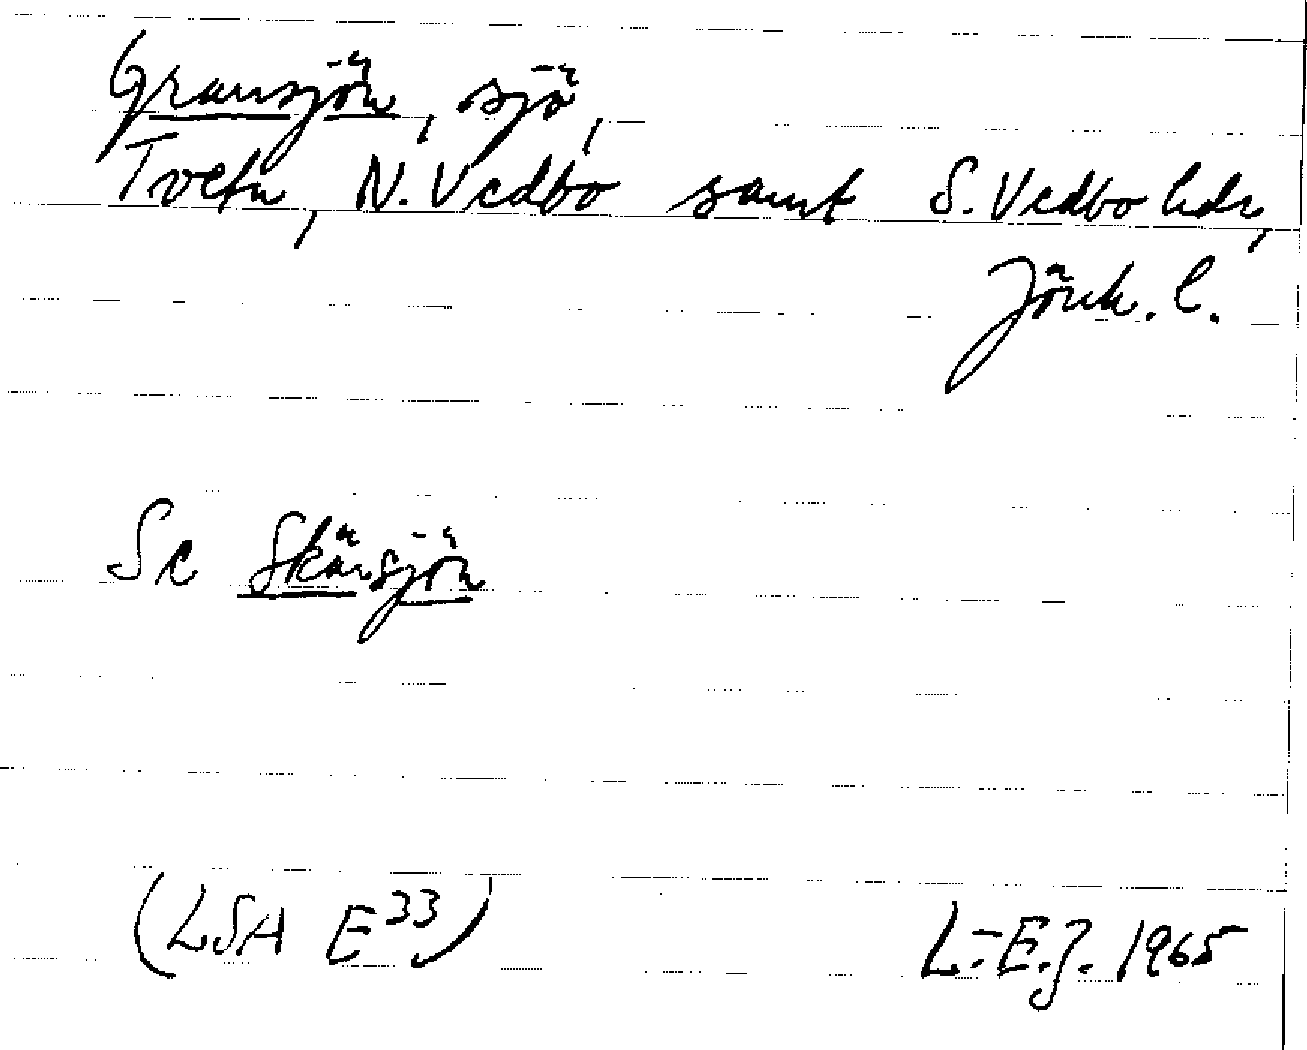 Gransjön, sjö,
Tveta, N. Vedbo samt S. Vedbo hdr,
Jönk. l.
Se Skärsjön
(LSA E³³)
L.-E.J. 1965